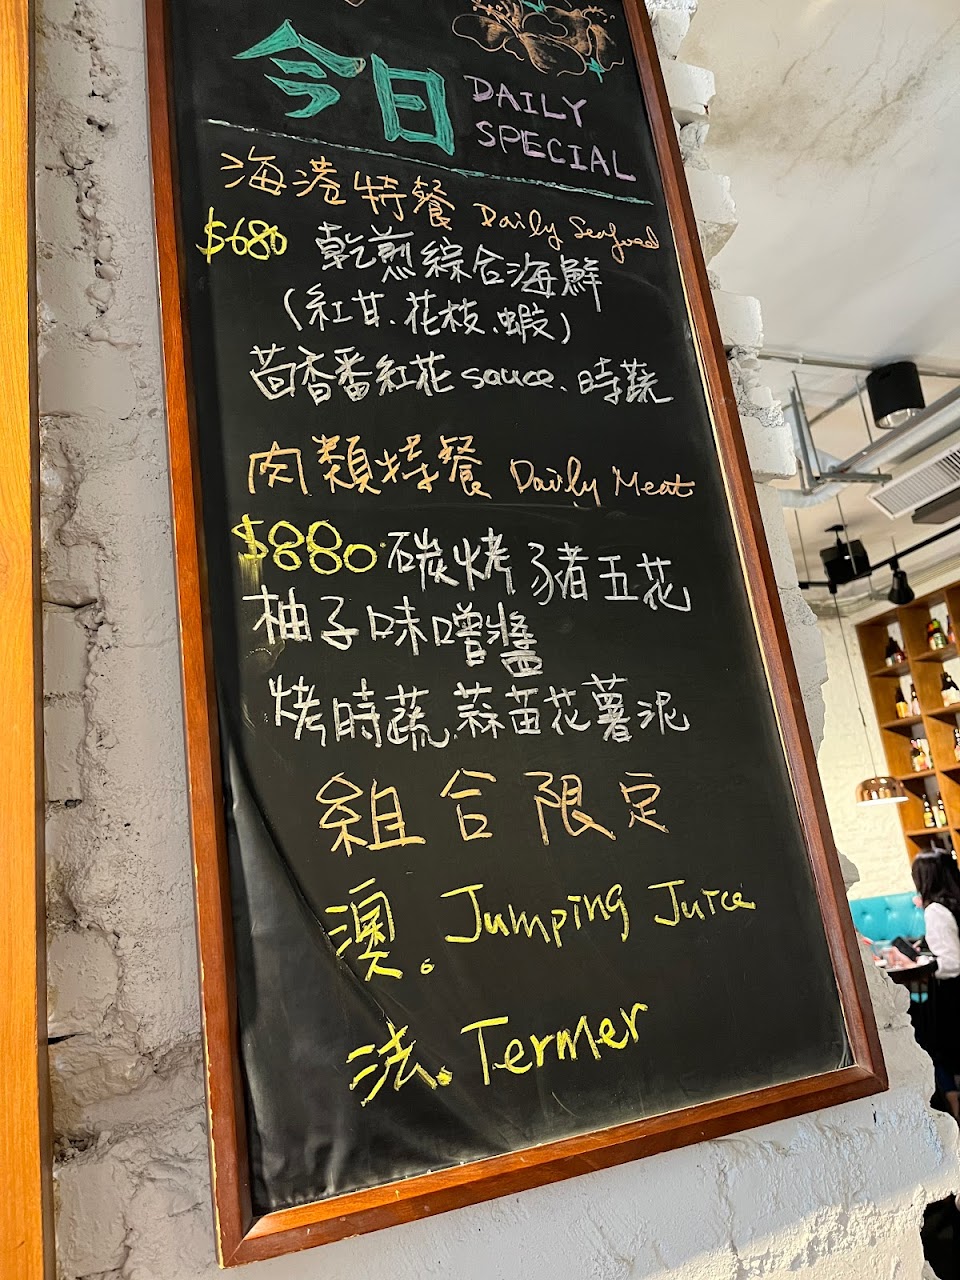 今日 DAILY SPECIAL
海港特餐 Daily Seafood
$680 乾煎綜合海鮮
(紅甘、花枝、蝦)
茴香番紅花sauce、時蔬
肉類特餐 Daily Meat
$880 碳烤豬五花
柚子味噌醬
烤時蔬、蒜苗花薯泥
組合限定
澳. Jumping Juice
法. Termer